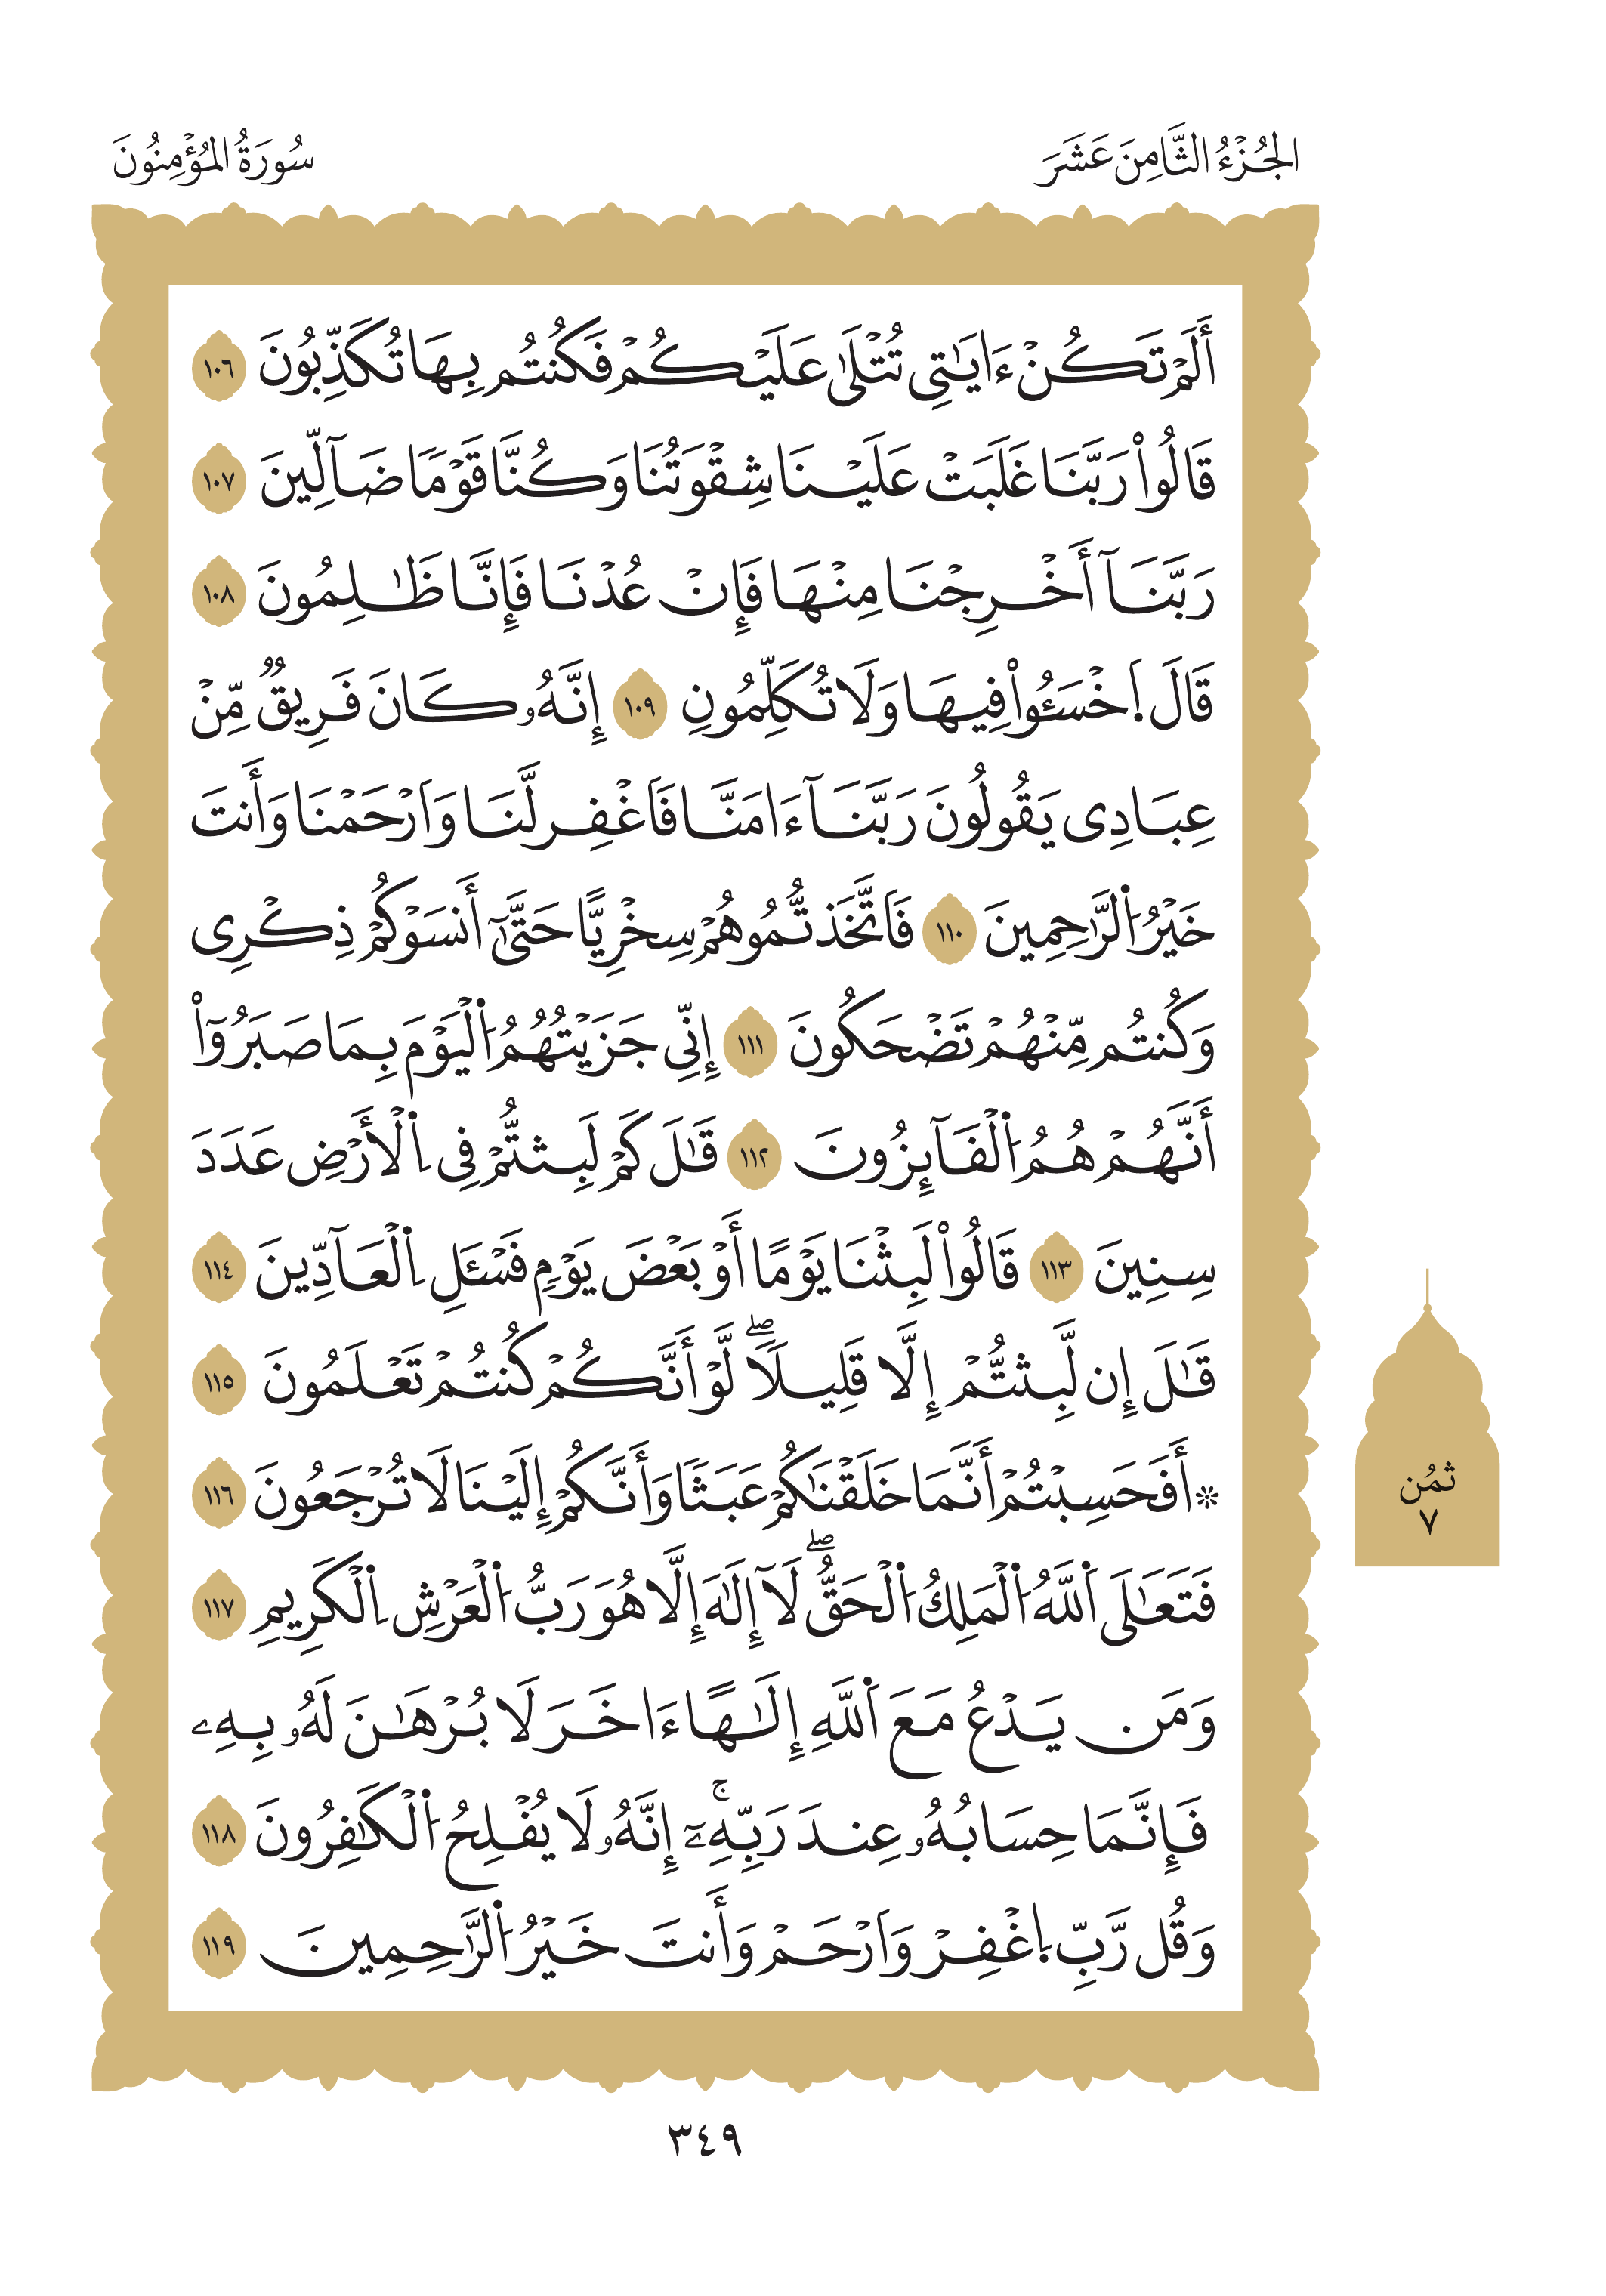 الجُزْءُ الثَّامِنَ عَشَرَ
سُورَةُ المُؤْمِنُونَ
أَلَمْ تَكُنْ ءَايَٰتِي تُتْلَىٰ عَلَيْكُمْ فَكُنتُم بِهَا تُكَذِّبُونَ ١٠٦
قَالُواْ رَبَّنَا غَلَبَتْ عَلَيْنَا شِقْوَتُنَا وَكُنَّا قَوْمًا ضَآلِّينَ ١٠٧
رَبَّنَآ أَخْرِجْنَا مِنْهَا فَإِنْ عُدْنَا فَإِنَّا ظَٰلِمُونَ ١٠٨
قَالَ اَ۪خْسَـُٔواْ فِيهَا وَلَا تُكَلِّمُونِ ١٠٩ إِنَّهُۥ كَانَ فَرِيقٌ مِّنْ
عِبَادِي يَقُولُونَ رَبَّنَآ ءَامَنَّا فَاَغْفِر لَّنَا وَاَرْحَمْنَا وَأَنتَ
خَيْرُ اُ۬لرَّٰحِمِينَ ١١٠ فَاَتَّخَذتُّمُوهُمْ سِخْرِيًّا حَتَّىٰٓ أَنسَوْكُمْ ذِكْرِي
وَكُنتُم مِّنْهُمْ تَضْحَكُونَ ١١١ إِنِّي جَزَيْتُهُمُ اُ۬لْيَوْمَ بِمَا صَبَرُوٓاْ
أَنَّهُمْ هُمُ اُ۬لْفَآئِزُونَ ١١٢ قَٰلَ كَمْ لَبِثتُّمْ فِي اِ۬لْأَرْضِ عَدَدَ
سِنِينَ ١١٣ قَالُواْ لَبِثْنَا يَوْمًا أَوْ بَعْضَ يَوْمٍ فَسْـَٔلِ اِ۬لْعَآدِّينَ ١١٤
قَٰلَ إِن لَّبِثتُّمْ إِلَّا قَلِيلًاۖ لَّوْ أَنَّكُمْ كُنتُمْ تَعْلَمُونَ ١١٥
* أَفَحَسِبْتُمْ أَنَّمَا خَلَقْنَٰكُمْ عَبَثًا وَأَنَّكُمْ إِلَيْنَا لَا تُرْجَعُونَ ١١٦
فَتَعَٰلَى اَ۬للَّهُ اُ۬لْمَلِكُ اُ۬لْحَقُّۖ لَآ إِلَٰهَ إِلَّا هُوَ رَبُّ اُ۬لْعَرْشِ اِ۬لْكَرِيمِ ١١٧
وَمَن يَدْعُ مَعَ اَ۬للَّهِ إِلَٰهًا ءَاخَرَ لَا بُرْهَٰنَ لَهُۥ بِهِۦ
فَإِنَّمَا حِسَابُهُۥ عِندَ رَبِّهِۦٓۚ إِنَّهُۥ لَا يُفْلِحُ اُ۬لْكَٰفِرُونَ ١١٨
وَقُل رَّبِّ اِ۪غْفِرْ وَاَرْحَمْ وَأَنتَ خَيْرُ اُ۬لرَّٰحِمِينَ ١١٩
ثُمُن
٧
٣٤٩